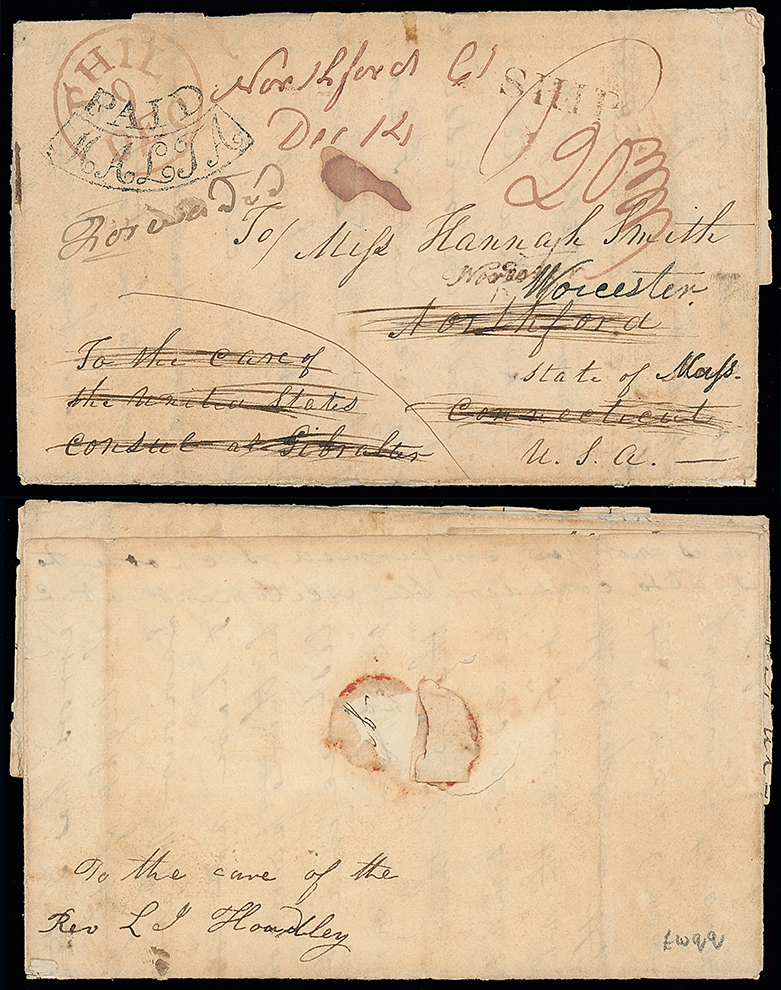 PHIL
9
DEC
PAID
MALTA
Northford Ct
Dec 14
SHIP
20
Forwarded
To/ Miss Hannah Smith
Worcester.
Northford
To the care of
the United States
Consul at Gibralter
State of Mass.
Connecticut
U. S. A. —
To the care of the
Rev L I Hoadley